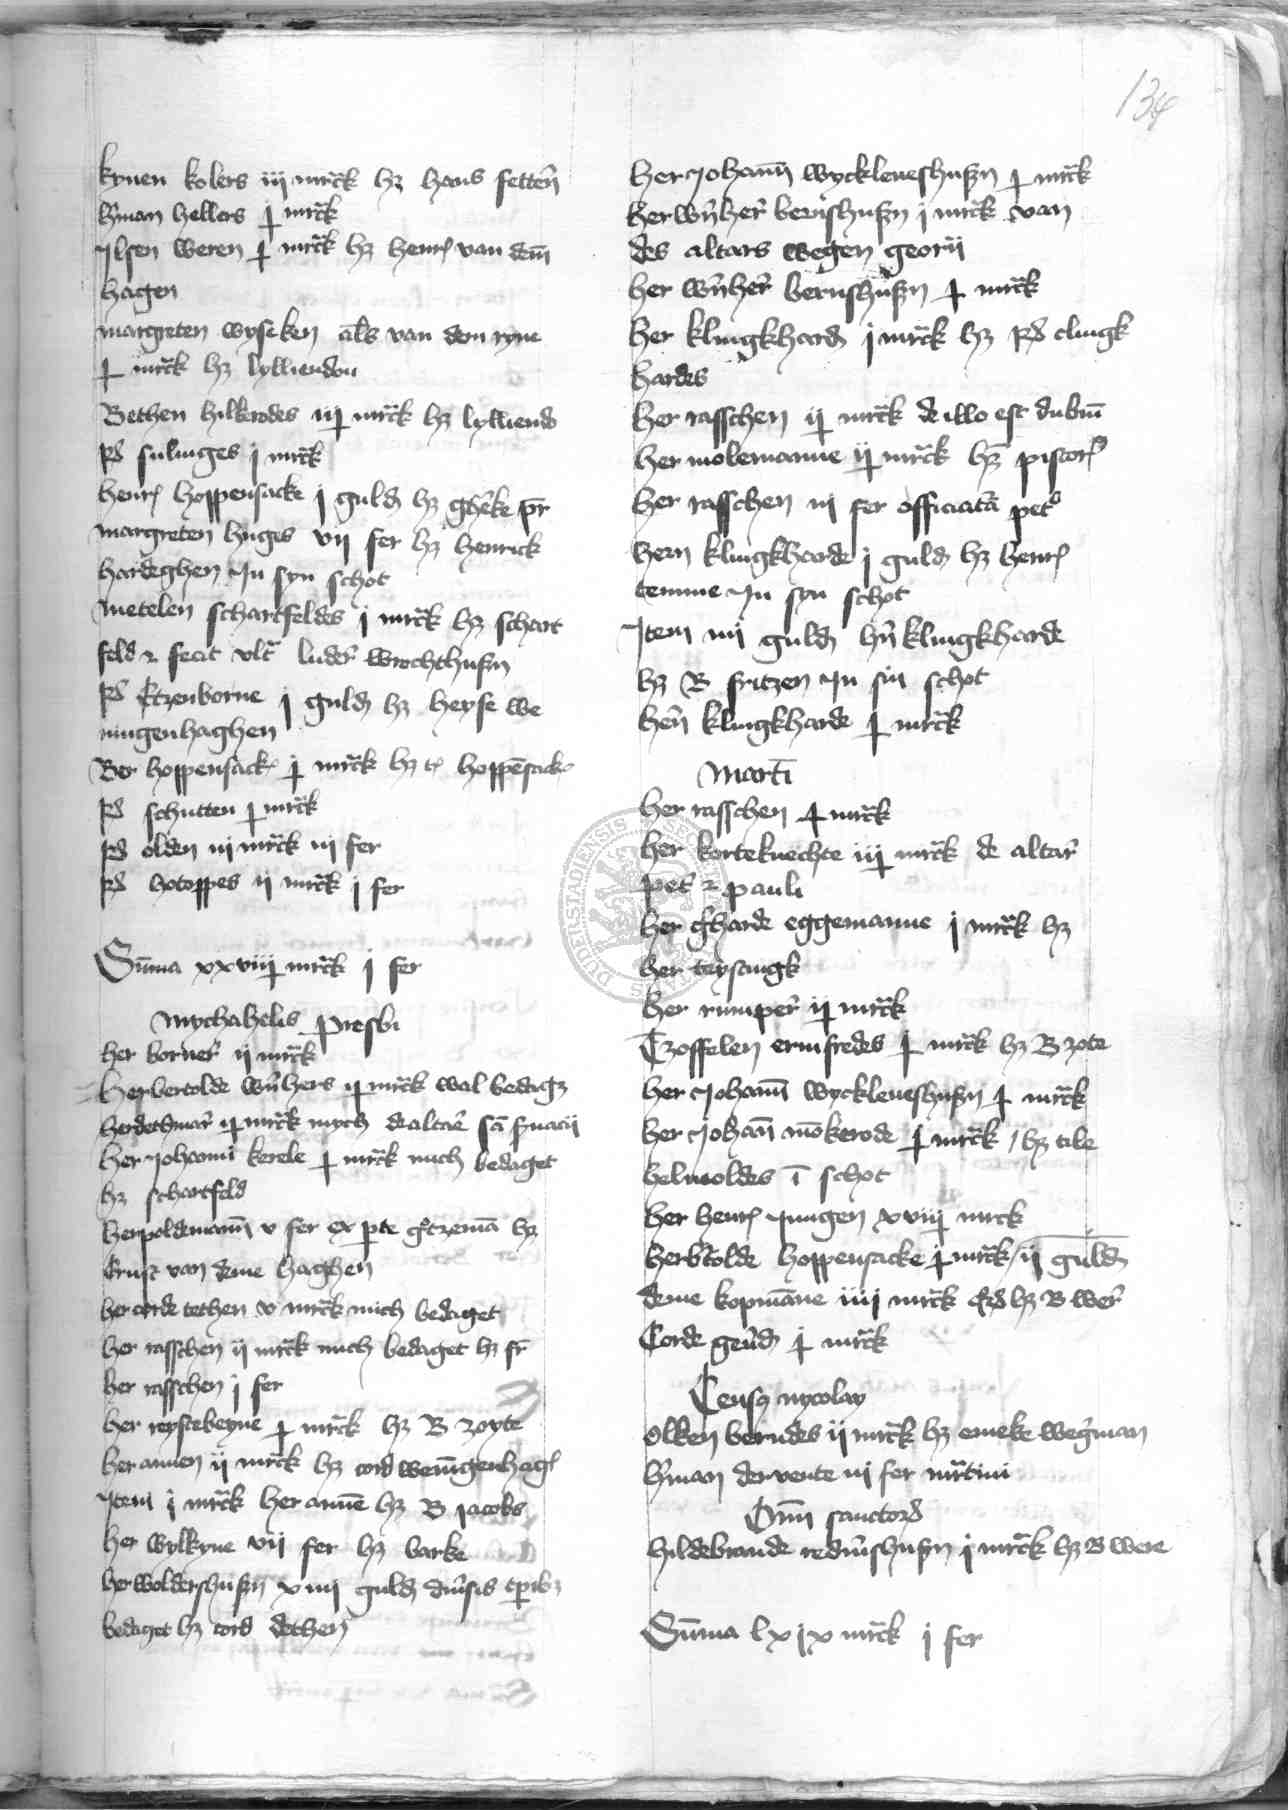 134
kynen kolers iij mrck hz hans fetten
hman hellers j mrck
Ilsen weren j mrck hz henr van dem
hagen
margreten wyseken als van dem ryne
j mrck hz lylliendon
Bethen hilkerodes iij mrck hz lylliendo
sulinges j mrck
henr hoppensacke j guld hz gheke
margreten huges vij fer hz henrick
hardeghen In syn schot
metelen schartfeldes j mrck hz schart
feld fecit vlt luder wrochthusen
Etzenborne j guld hz heyse we
ningenhaghen
Ber hoppensack j mrck hz hoppensack
schutten j mrck
olden iij mrck iij fer
hotoppes ij mrck j fer
Suma xxviij mrck j fer
mychahelis presbi
her borner ij mrck
her bertolde wnhers ij mrck wal bedagz
her dethmar ij mrck nych de altare
her Johanni kerele j mrck nich bedaget
hz schartfeld
her poldeman v fer ex pte
Ernst van deme haghen
her corde tethen v mrck nich bedaget
her rasschen ij mrck nich bedaget hz
her rasschen j fer
her reystebeyne j mrck hz B zoyte
her annen ij mrck hz cord weningenhag
Item j mrck her anne hz B jacobs
her wylkyne vij fer hz barke
her woldershusen xiiij guld
bedaget hz cord dethen
her Johann wyckleueshusen j mrck
her wnher bernshusen j mrck van
des altars wegen georii
her wnher bernshusen j mrck
her klingkhard j mrck hz clingk
hardes
her rasschen ij mrck de illo est dubium
her molemanne ij mrck hz pistor
her rasschen iij fer officiata pet
hern klingkharde j guld hz henr
temme In syn schot
Item iiij guld hn klingkharde
hz B fritzen In sin schot
hern klingkharde j mrck
Marti
her rasschen j mrck
her korteknechte iij mrck de altar
pet pauli
her gharde eggemanne j mrck hz
her teyscingk
her rumper ij mrck
Czoffelen ermfredes j mrck hz B zote
her Johann wyckleueshusen j mrck
her Johan monkerode j mrck hz tile
helmoldes i schot
her henr Jungen xviij mrck
her btolde hoppensacke j mrck ij guld
deme kopmane iiij mrck hz B wer
Corde gerd j mrck
Censq nycolay
Olken berndes ij mrck hz emeke wegman
hman dervente iij fer mrtini
Omn sanctor
hildebrande redmshusen j mrck hz B were
Suma lxix mrck j fer
DUDERSTADIENSIS